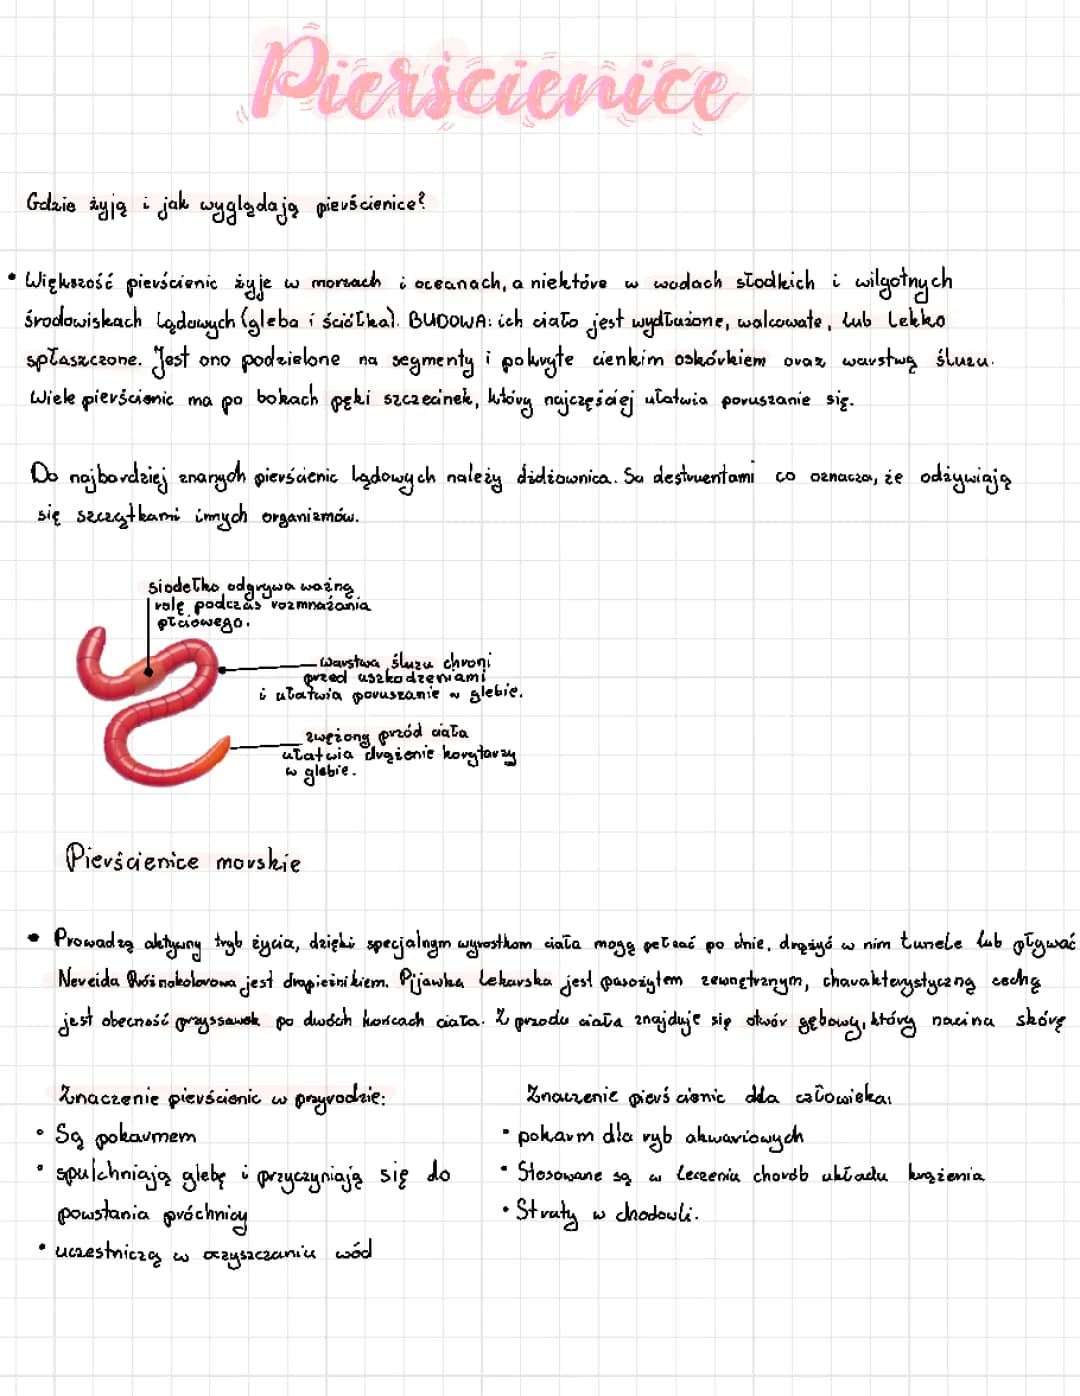 Pierścienice
Gdzie żyją i jak wyglądają pierścienice?
• Większość pierścienic żyje w morzach i oceanach, a niektóre w wodach słodkich i wilgotnych
środowiskach lądowych (gleba i ściółka). BUDOWA: ich ciało jest wydłużone, walcowate, lub lekko
spłaszczone. Jest ono podzielone na segmenty i pokryte cienkim oskórkiem oraz warstwą śluzu.
Wiele pierścienic ma po bokach pęki szczecinek, który najczęściej ułatwia poruszanie się.
Do najbardziej znanych pierścienic lądowych należy dżdżownica. Są destruentami co oznacza, że odżywiają
się szczątkami innych organizmów.
siodełko odgrywa ważną
rolę podczas rozmnażania
płciowego.
warstwa śluzu chroni
przed uszkodzeniami
i ułatwia poruszanie w glebie.
zwężony przód ciała
ułatwia drążenie korytarzy
w glebie.
Pierścienice morskie
• Prowadzą aktywny tryb życia, dzięki specjalnym wyrostkom ciała mogą pełzać po dnie, drążyć w nim tunele lub pływać
Nereida Różnokolorowa jest drapieżnikiem. Pijawka lekarska jest pasożytem zewnętrznym, charakterystyczną cechą
jest obecność przyssawek po dwóch końcach ciała. Z przodu ciała znajduje się otwór gębowy, który nacina skórę
Znaczenie pierścienic w przyrodzie:
• Są pokarmem
• spulchniają glebę i przyczyniają się do
powstania próchnicy
• uczestniczą w oczyszczaniu wód
Znaczenie pierścienic dla człowieka:
• pokarm dla ryb akwariowych
• Stosowane są w leczeniu chorób układu krążenia
• Straty w chodowli.